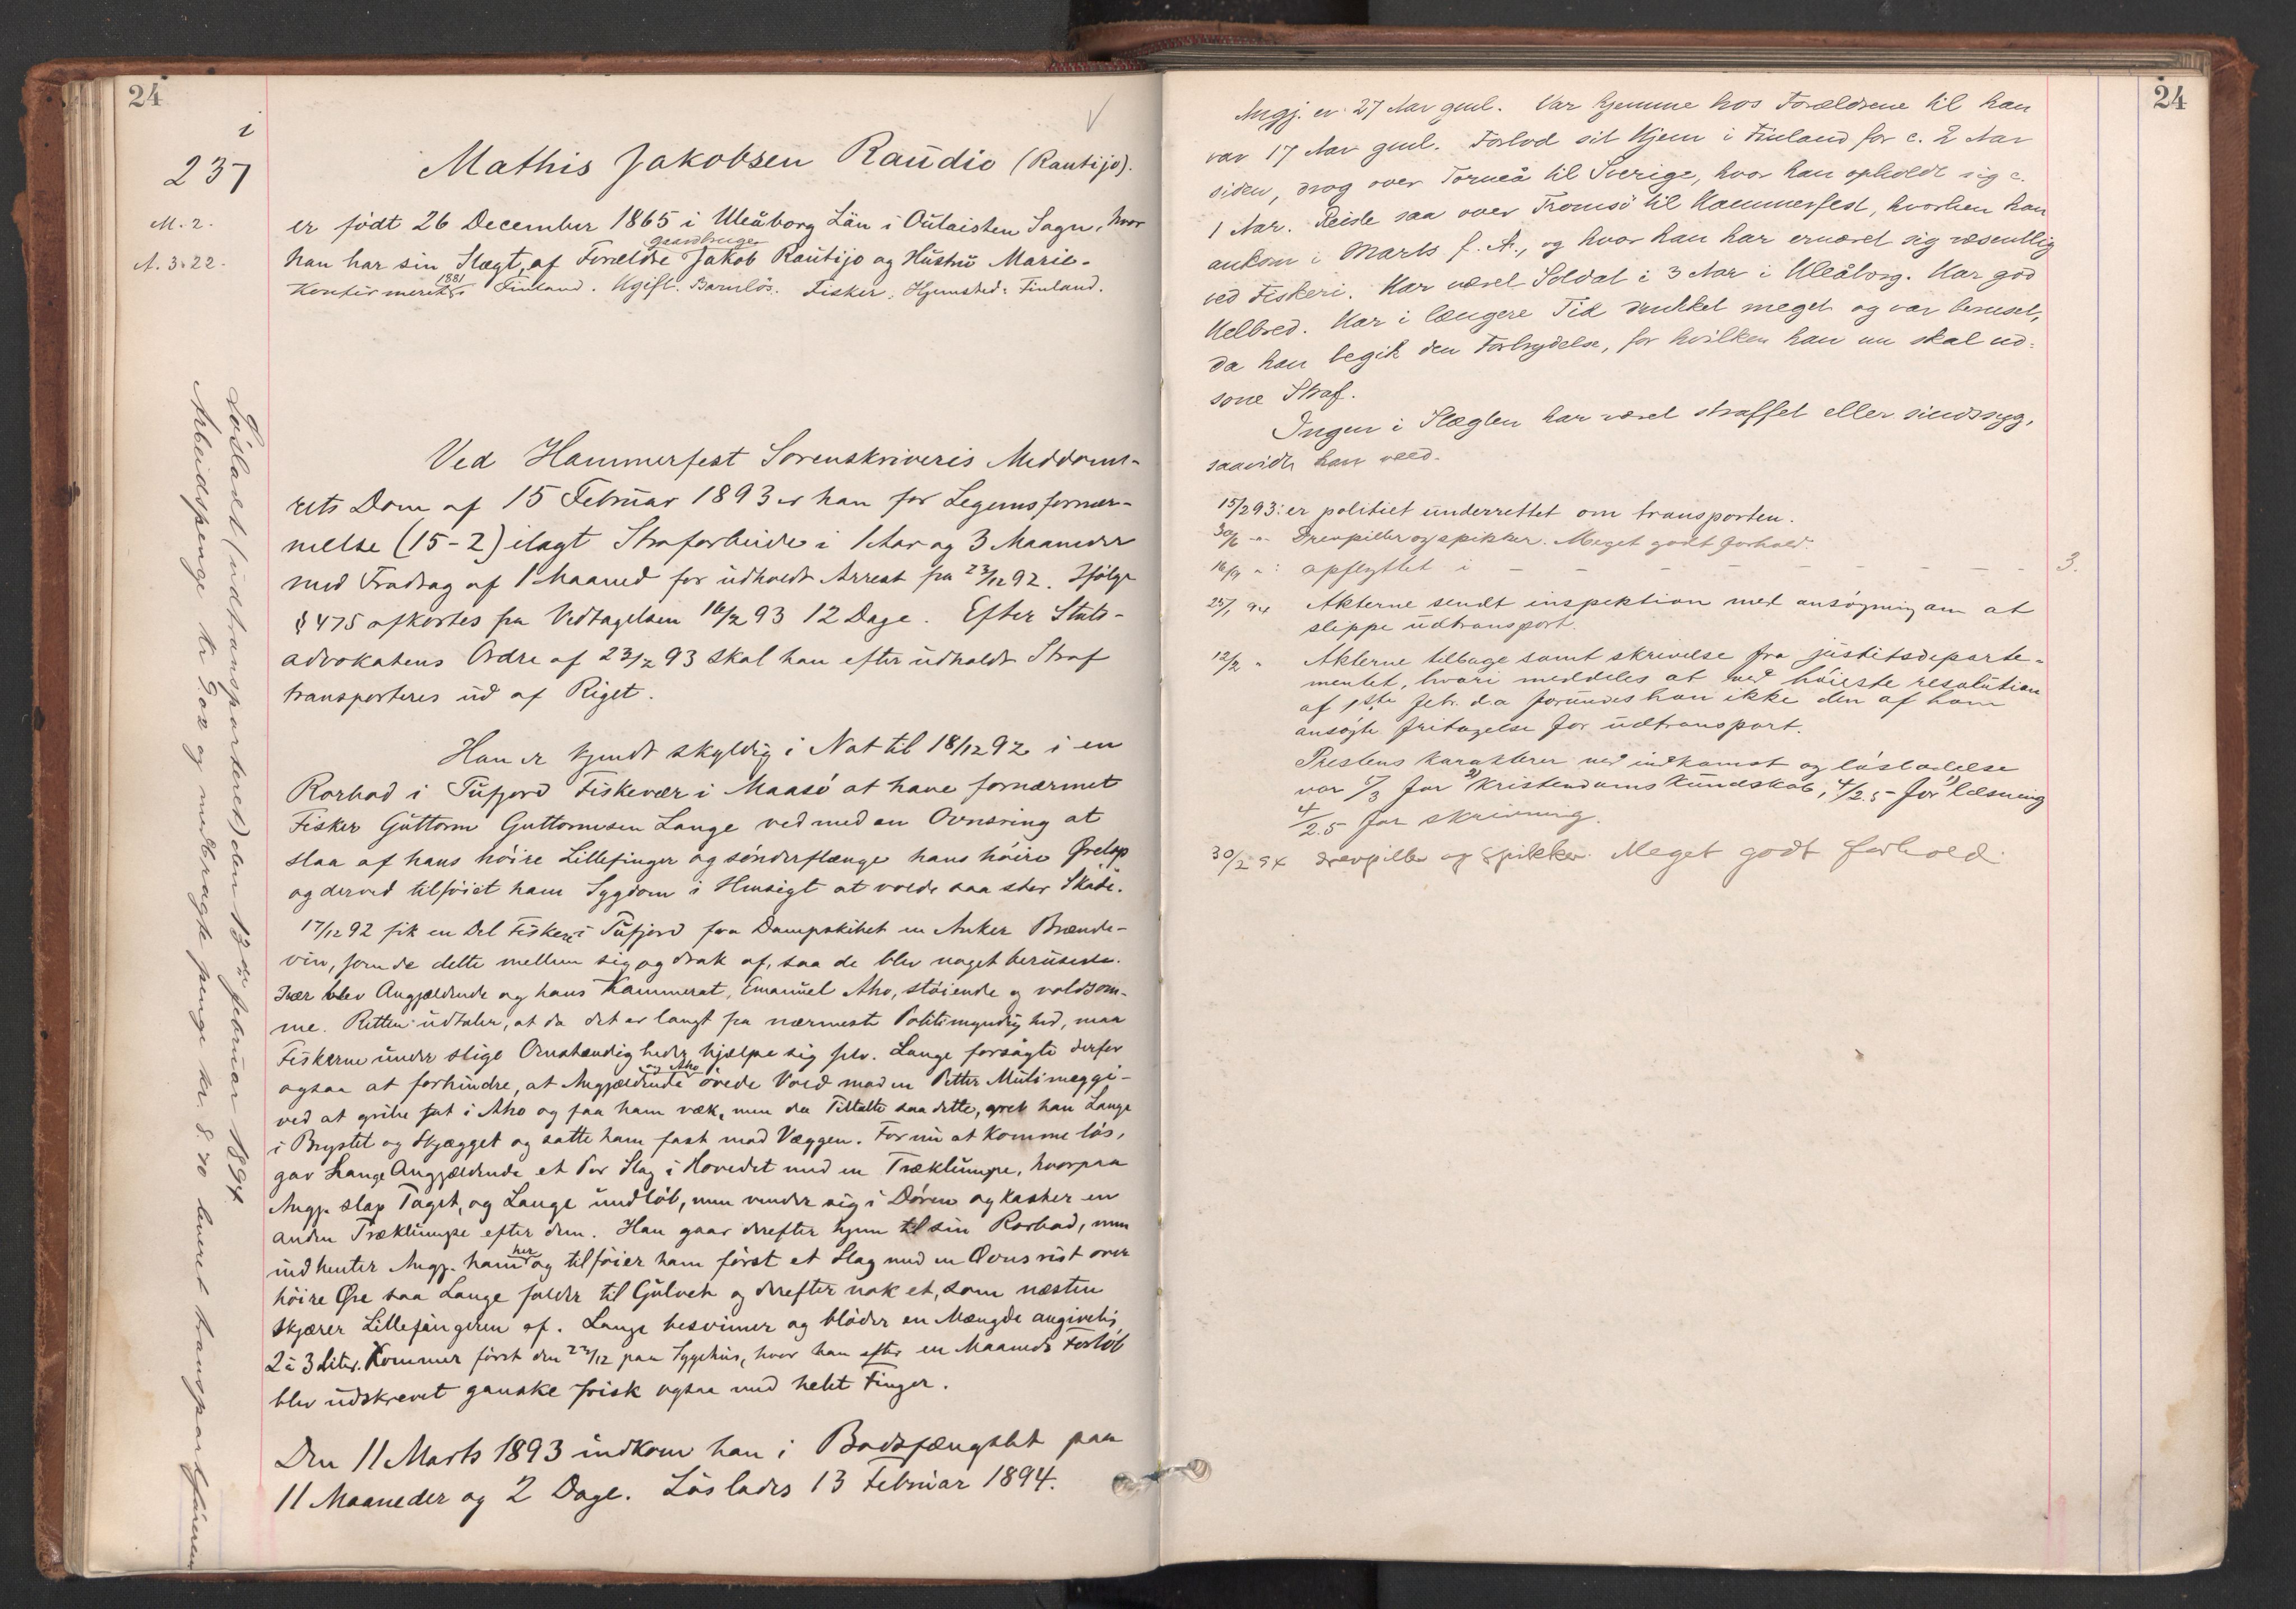 24
i
237
M. 2.
A. 3.22.
Mathis Jakobsen Raudio (Rautijo).
er födt 26 December 1865 i Uleåborg Län i Oulaisten Sogn, hvor
han har sin Slægt, af Forældre gaardbruger Jakob Rautijo og Hustru Marie.
Konfirmeret 1881 i Finland. Ugift. Barnlös. Fisker. Hjemsted: Finland.
Ved Hammerfest Sorenskriveris Meddoms-
rets Dom af 15 Februar 1893 er han for Legemsfornær-
melse (15-2) ilagt Strafarbeide i 1 Aar og 3 Maaneder
med Fradrag af 1 Maaned for udholdt Arrest fra 23/12 92. Ifölge
§ 475 afkortes fra Vedtagelsen 16/2 93 12 Dage. Efter Stats-
advokatens Ordre af 23/2 93 skal han efter udholdt Straf
transporteres ud af Riget.
Han er kjendt skyldig i Nat til 18/12 92 i en
Rorbod i Tufjord Fiskevær i Maasö at have fornærmet
Fisker Guttorm Guttormsen Lange ved med en Ovnsring at
slaa af hans höire Lillefinger og sönderflænge hans höire Örelap
og derved tilföiet ham Sygdom i Hensigt at volde saa stor Skade.
17/12 92 fik en Del Fiskere i Tufjord fra Dampskibet en Anker Brænde-
vin, som de delte mellem sig og drak af, saa de blev noget berusede.
Især blev Angjældende og hans Kammerat, Emanuel Aho, stöiende og voldsom-
me. Retten udtaler, at da det er langt fra nærmeste Politimyndighed, maa
Fiskerne under slige Omstændigheder hjælpe sig selv. Lange forsögte derfor
ogsaa at forhindre, at Angjældende og Aho övede Vold mod en Petter Mulimæggi-
ved at gribe fat i Aho og faa ham væk, men da Tiltalte saa dette, greb han Lange
i Brystet og Skjægget og satte ham fast mod Væggen. For nu at komme lös,
gav Lange Angjældende et Par Slag i Hovedet med en Træklumpe, hvorpaa
Angj. slap Taget, og Lange undlöb, men vender sig i Dören og kaster en
anden Træklumpe efter dem. Han gaar derefter hjem til sin Rorbod, men
indhenter Angj. ham her og tilföier ham först et Slag med en Ovnsrist over
höire Öre saa Lange falder til Gulvet og derefter nok et, som næsten
skjærer Lillefingeren af. Lange besvimer og blöder en Mængde angivelig
2 à 3 Liter. Kommer först den 23/12 paa Sygehus, hvor han efter en Maaneds Forlöb
blev udskrevet ganske frisk ogsaa med helet Finger.
Den 11 Marts 1893 indkom han i Bodsfængslet paa
11 Maaneder og 2 Dage. Löslades 13 Februar 1894.
Lösladt (udtransporteret) den 13de februar 1894.
Arbeidspenge kr 9.02 og medbragte penge kr. 8.70 leveret transportföreren
24
Angj. er 27 Aar gml. Var hjemme hos Forældrene til han
var 17 Aar gml. Forlod sit Hjem i Finland for c. 2 Aar
siden, drog over Torneå til Sverige, hvor han opholdt sig c.
1 Aar. Reiste saa over Tromsö til Hammerfest, hvorhen han
ankom i Marts f. A., og hvor han har ernæret sig væsentlig
ved Fiskeri. Har været Soldat i 3 Aar i Uleåborg. Har god
Helbred. Har i længere Tid drukket meget og var beruset,
da han begik den Forbrydelse, for hvilken han nu skal ud-
sone Straf.
Ingen i Slægten har været straffet eller sindssyg,
saavidt han veed.
15/2 93: er politiet underrettet om transporten.
30/6 -"- Drevpiller og spikker. Meget godt forhold.
16/9 -": opflyttet i - - - - - - - - - 3.
25/1 94 Akterne sendt inspektion med ansögning om at
slippe udtransport.
12/2 " Akterne tilbage samt skrivelse fra justitsdeparte-
mentet, hvori meddeles at ved höieste resolution
af 1ste febr. d.a forundes han ikke den af ham
ansögte fritagelse for udtransport.
Prestens karakterer ved indkomst og lösladelse
var 5/3 for 2) kristendoms kundskab, 4/2.5 - for 1) læsning
4/2.5 for skrivning.
30/2 94 drevpiller og spikker. Meget godt forhold.